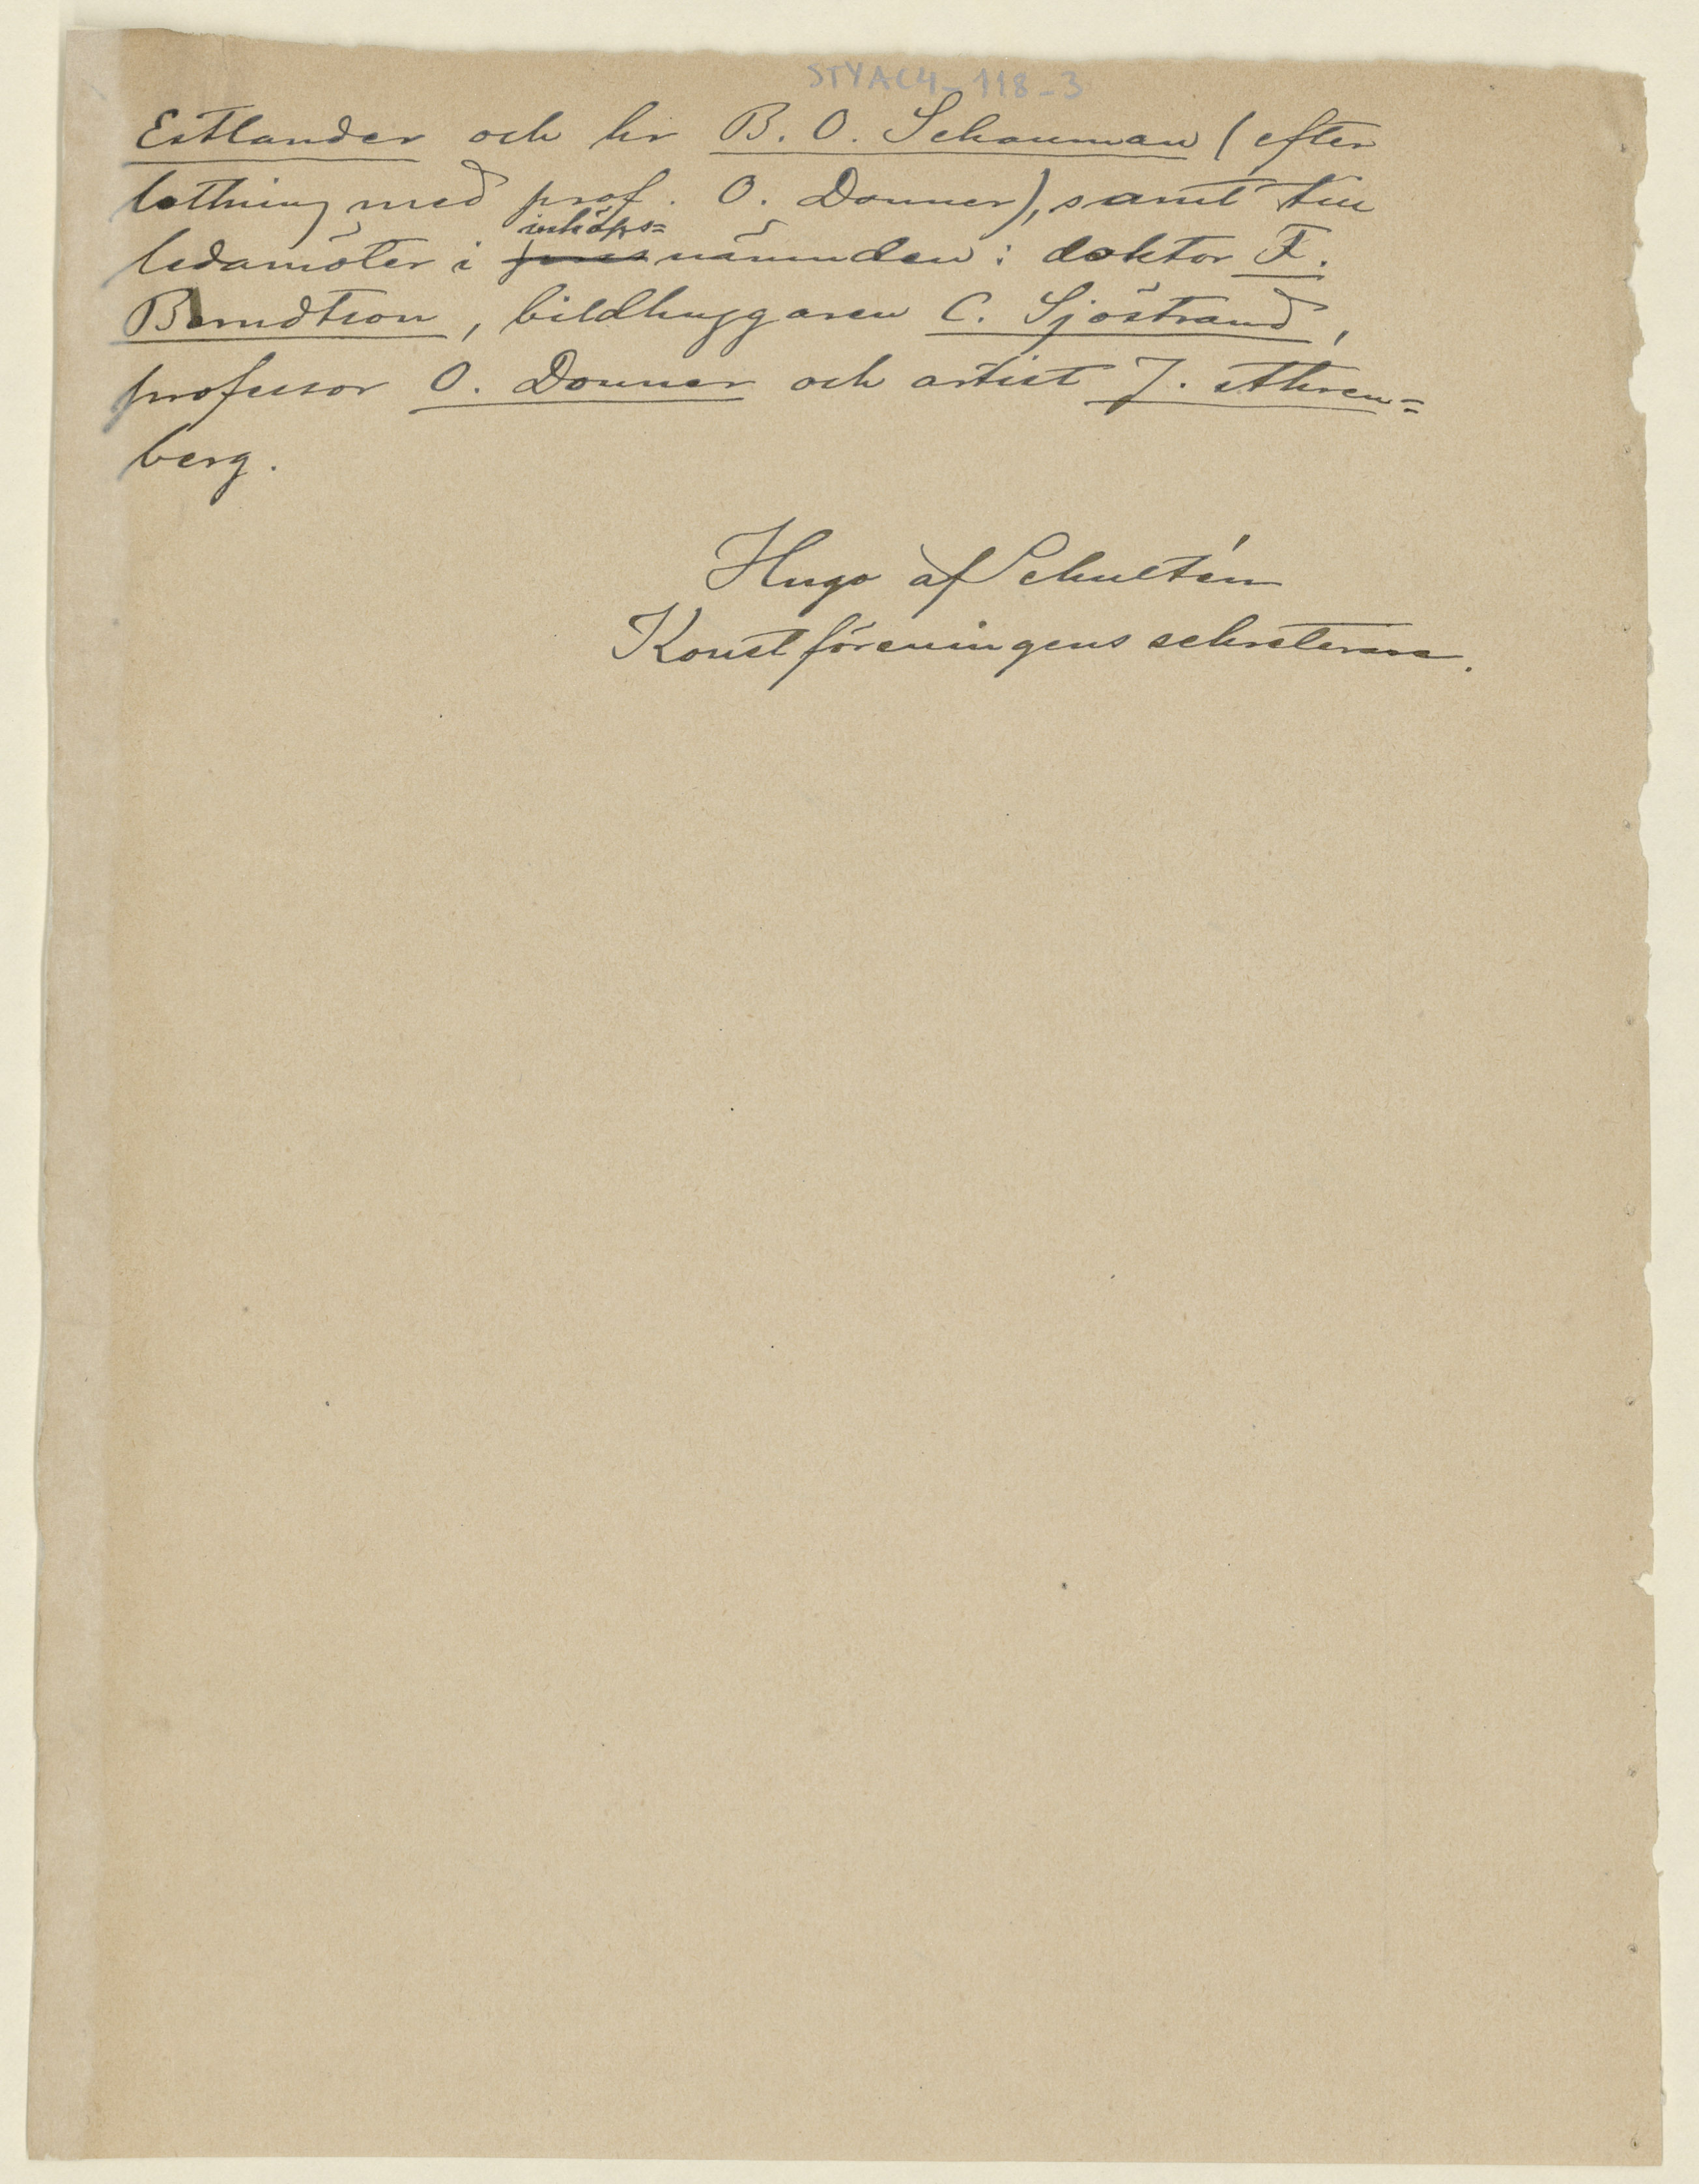 STYAC4_118_3
Estlander och hr B. O. Schauman (efter
lottning med prof. O. Donner), samt till
inköps=
ledamöter i nämnden: doktor F.
Berndtson, bildhuggaren C. Sjöstrand,
professor O. Donner och artist J. Ahren=
berg.
Hugo af Schultén
Konstföreningens sekreterare.